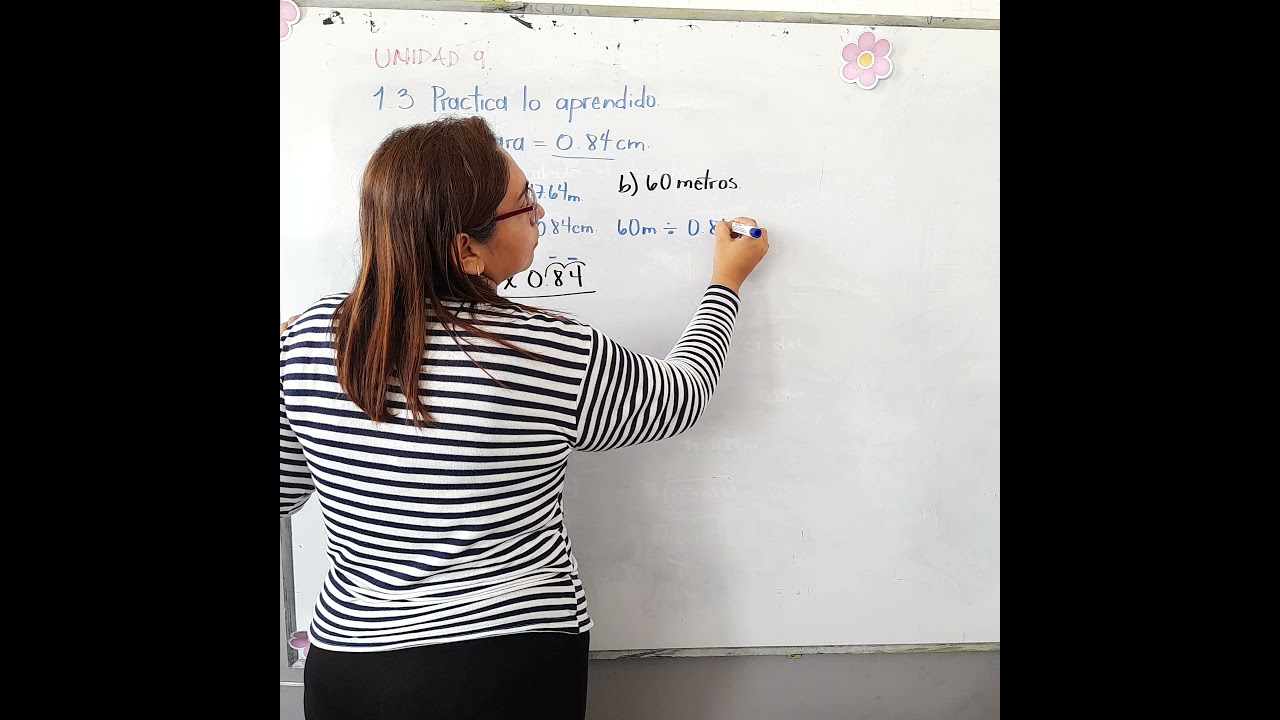 UNIDAD 9.
1.3 Practica lo aprendido.
= 0.84 cm.
7.64m. b) 60 metros.
0.84cm. 60m ÷ 0.8
x 0.84